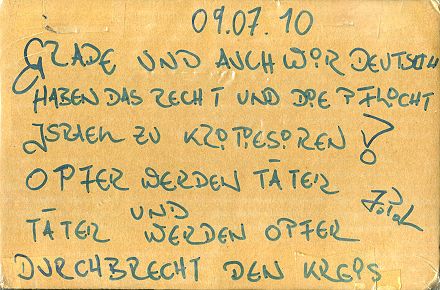 09.07.10
GRADE UND AUCH WIR DEUTSCH
HABEN DAS RECHT UND DIE PFLICHT
ISRAEL ZU KRITIESIREN!
OPFER WERDEN TÄTER
UND
TÄTER WERDEN OPFER
DURCHBRECHT DEN KREIS